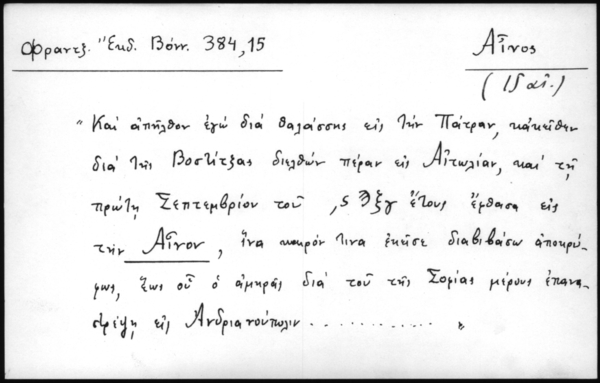 Φραντζ. Ἔκδ. Βόνν. 384,15
Αἶνος
(15 αἰ.)
"Καὶ ἀπῆλθον ἐγὼ διὰ θαλάσσης εἰς τὴν Πάτραν, κἀκεῖθεν
διὰ τῆς Βοστίτζας διελθὼν πέραν εἰς Αἰτωλίαν, καὶ τῇ
πρώτῃ Σεπτεμβρίου τοῦ ,ςϠξγ ἔτους ἔφθασα εἰς
τὴν Αἶνον, ἵνα καιρόν τινα ἐκεῖσε διαβιβάσω ἀποκρύ-
φως, ἕως οὗ ὁ ἀμηρᾶς διὰ τοῦ τῆς Σοφίας μέρους ἐπανα-
στρέψῃ εἰς Ἀνδριανούπολιν .............. "